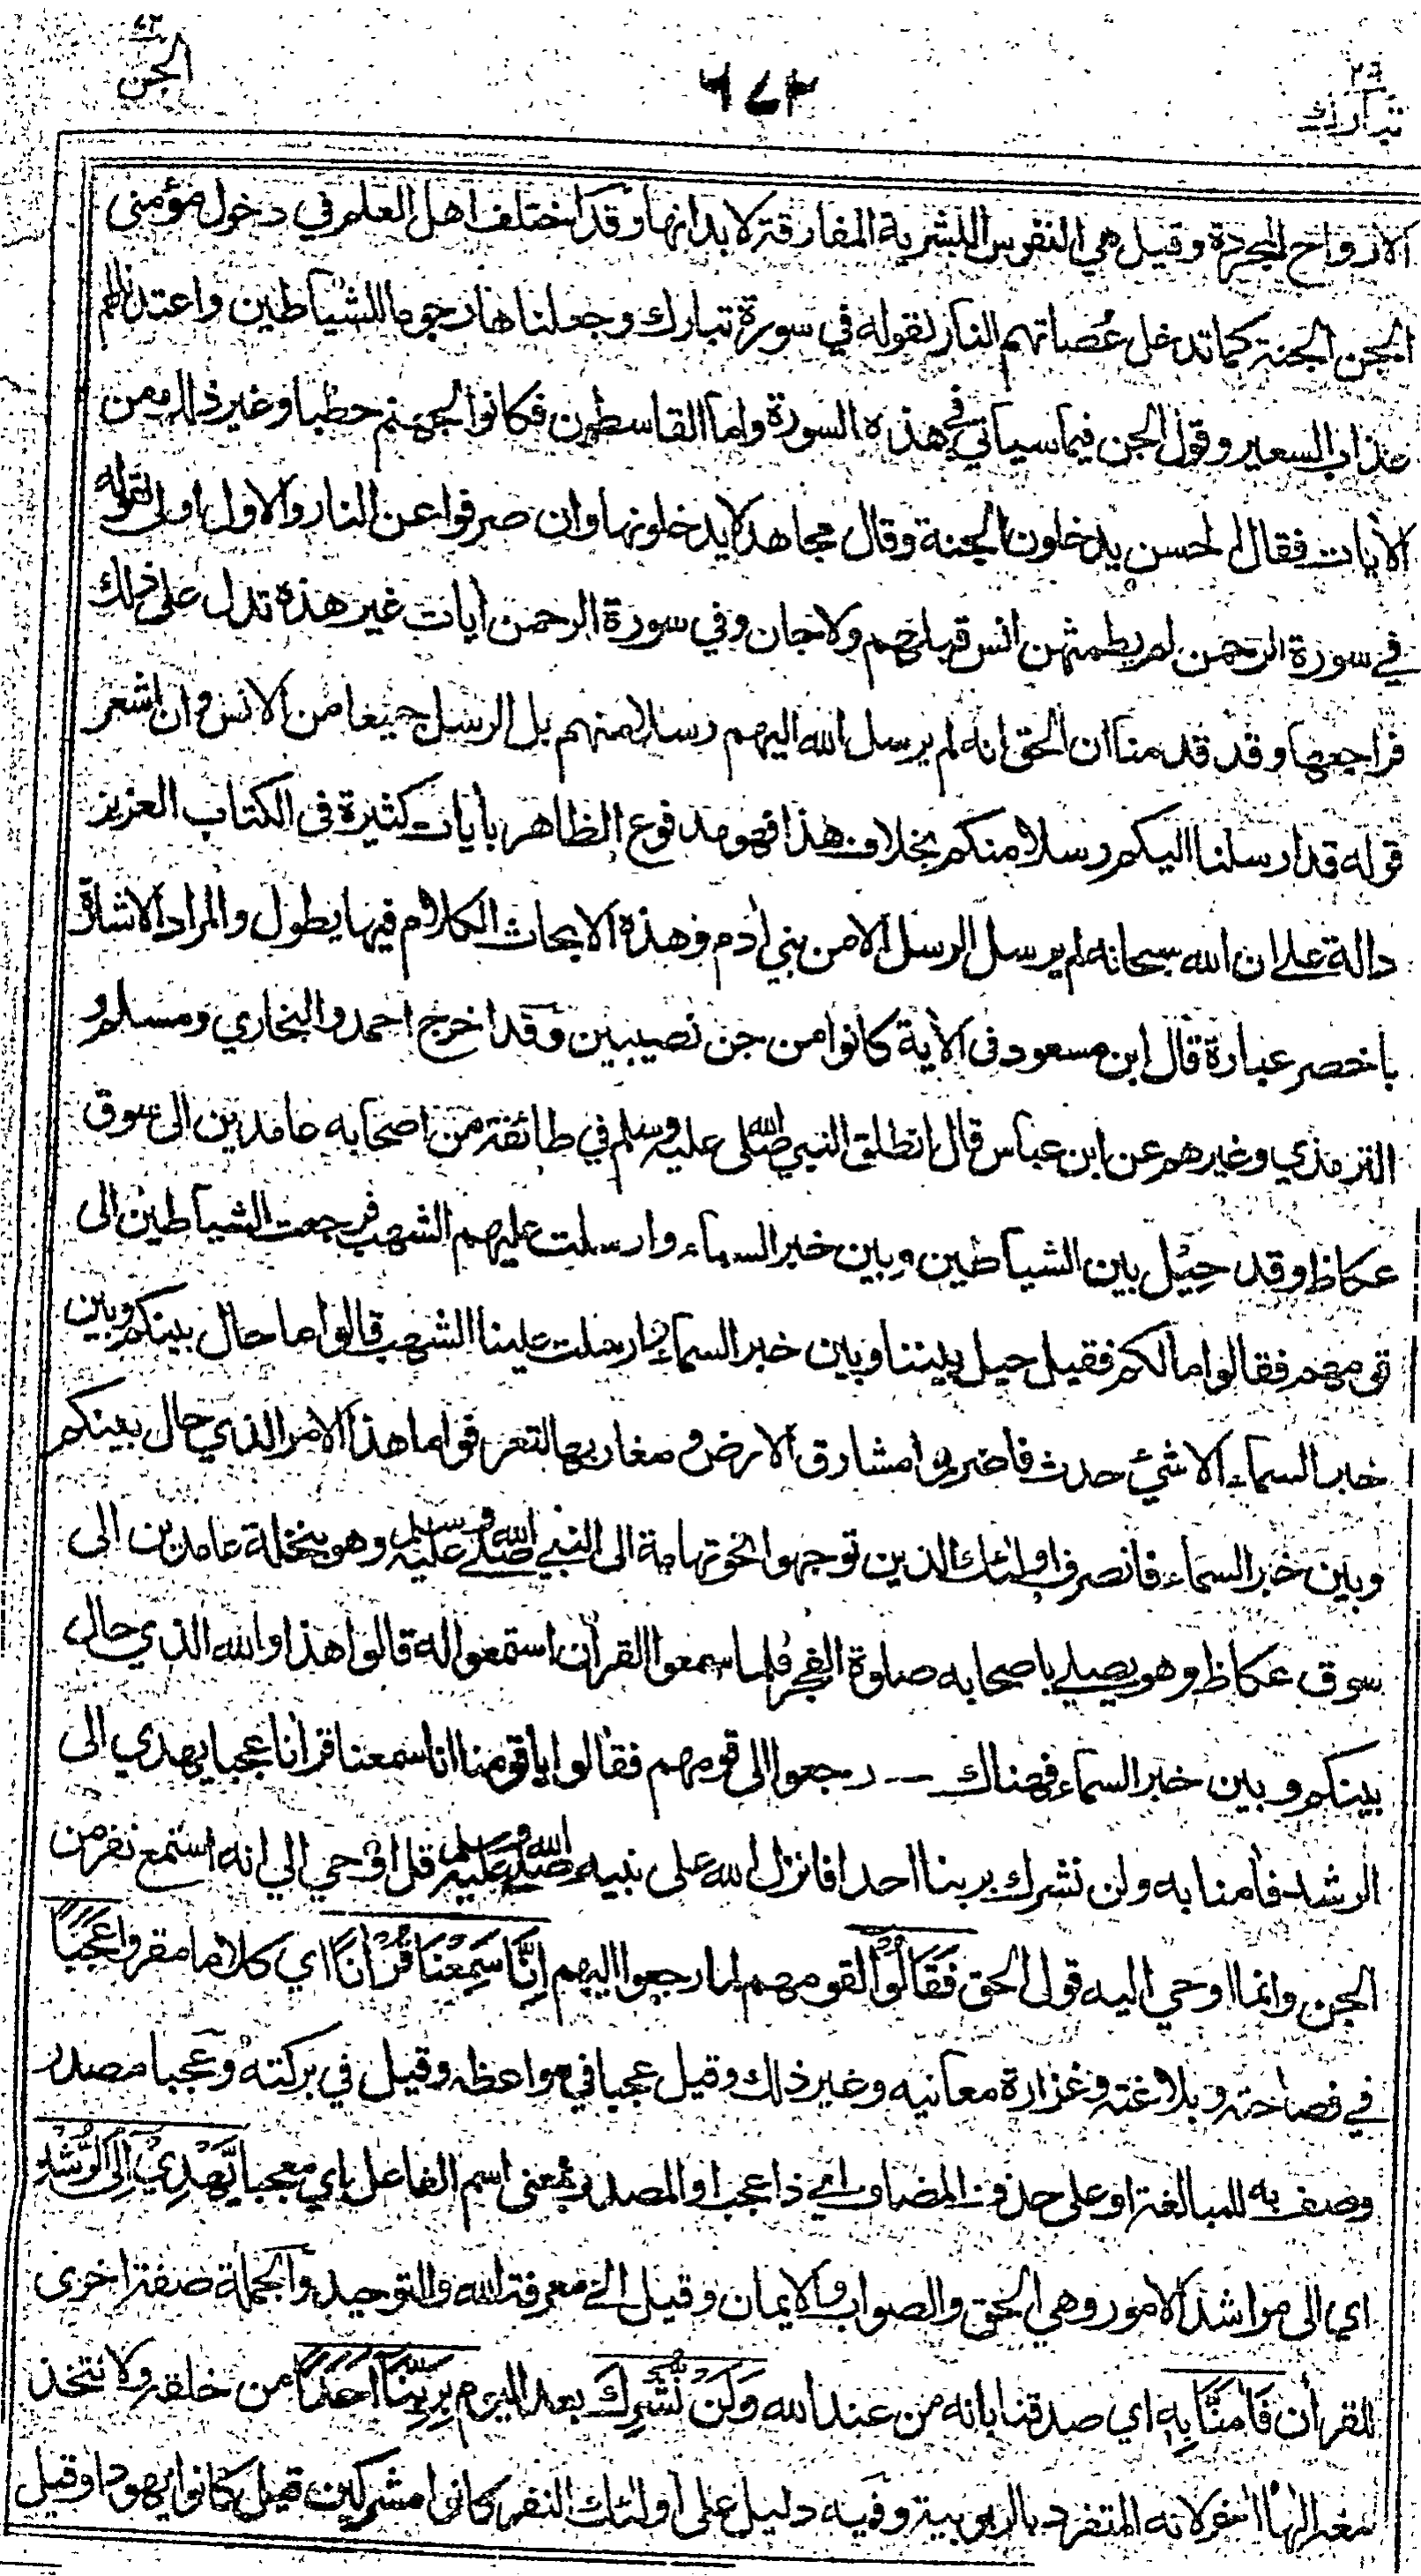 ٢٩ تبارك
٦٧٣
٧٢ الجن
الارواح المجردة وقيل هي النفوس البشرية المفارقة لابدانها وقد اختلف اهل العلم في دخول مؤمنى
الجن الجنة كما تدخل عُصاتهم النار لقوله في سورة تبارك وجعلناها رجوما للشياطين واعتدنا لهم
عذاب السعير وقول الجن فيما سياتي في هذه السورة واما القاسطون فكانوا لجهنم حطبا وغير ذلك من
الأيات فقال الحسن يدخلون الجنة وقال مجاهد لا يدخلونها وان صرفوا عن النار والاول اولى لقوله
في سورة الرحمن لم يطمثهن انس قبلهم ولا جان وفي سورة الرحمن أيات غير هذه تدل على ذلك
فراجعها وقد قدمنا ان الحق انه لم يرسل الله اليهم رسلا منهم بل الرسل جميعا من الانس وان اشعر
قوله قد ارسلنا اليكم رسلا منكم بخلاف هذا فهو مدفوع الظاهر بأيات كثيرة فى الكتاب العزيز
دالة على ان الله سبحانه لم يرسل الرسل الا من بني أدم وهذه الابحاث الكلام فيها يطول والمراد الاشارة
باخصر عبارة قال ابن مسعود فى الأية كانوا من جن نصيبين وقد اخرج احمد والبخاري ومسلم و
الترمذي وغيرهم عن ابن عباس قال انطلق النبي صلى الله عليه وسلم في طائفة من اصحابه عامدين الى سوق
عكاظ وقد حِيْل بين الشياطين وبين خبر السماء وارسلت عليهم الشهب فرجعت الشياطين الى
قومهم فقالوا مالكم فقيل حيل بيننا وبين خبر السماء وارسلت علينا الشهب قالوا ما حال بينكم وبين
خبر السماء الا شيء حدث فاضربوا مشارق الارض و مغاربها لتعرفوا ما هذا الامر الذي حال بينكم
وبين خبر السماء فانصرف اولئك الذين توجهوا نحو تهامة الى النبي صلى الله عليه وسلم وهو بنخلة عامدين الى
سوق عكاظ وهو يصلي باصحابه صلوة الفجر فلما سمعوا القرأن استمعوا له قالوا هذا والله الذي حال
بينكم وبين خبر السماء فهناك رجعوا الى قومهم فقالوا يا قومنا انا سمعنا قرأنا عجبا يهدي الى
الرشد فأمنا به ولن نشرك بربنا احدا فانزل الله على نبيه صلى الله عليه وسلم قل اوحي الي انه استمع نفر من
الجن وانما اوحي اليه قول الجن فَقَالُوْا لقومهم لما رجعوا اليهم اِنَّا سَمِعْنَا قُرْاٰنًا اي كلاما مقروا عَجَبًا
في فصاحته وبلاغته وغزارة معانيه وغير ذلك وقيل عجبا في مواعظه وقيل في بركته وعجبا مصدر
وصف به للمبالغة او على حذف المضاف اي ذا عجب او المصدر بمعنى اسم الفاعل اي معجبا يَّهْدِيْ اِلَى الرُّشْدِ
اي الى مراشد الامور وهي الحق والصواب والايمان وقيل الى معرفة الله والتوحيد والجملة صفة اخرى
للقرأن فَاٰمَنَّا بِهٖ اي صدقنا بانه من عند الله وَلَنْ نُّشْرِكَ بعد اليوم بِرَبِّنَآ اَحَدًا من خلقه ولا نتخذ
معه الها أخر لانه المتفرد بالربوبية وفيه دليل على أولئك النفر كانوا مشركين قيل كانوا يهودا وقيل